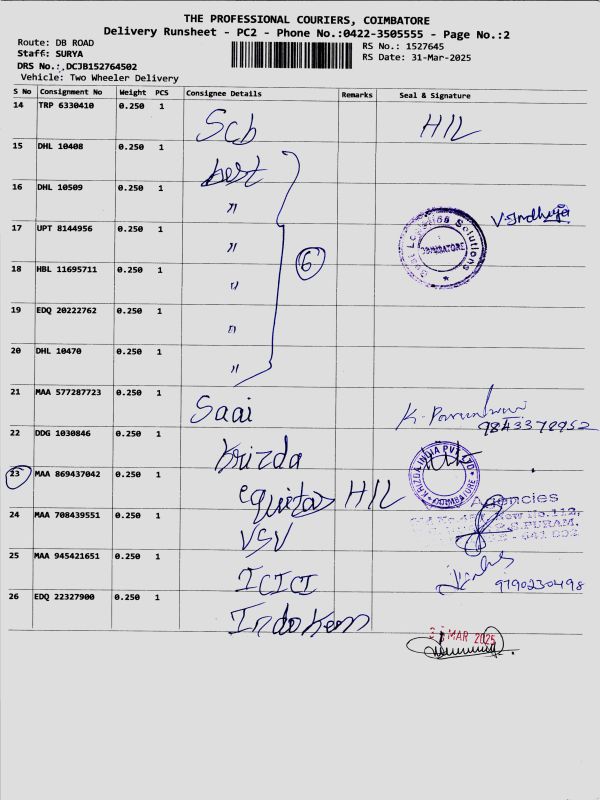 THE PROFESSIONAL COURIERS, COIMBATORE
Delivery Runsheet - PC2 - Phone No.:0422-3505555 - Page No.:2
Route: DB ROAD
RS No.: 1527645
Staff: SURYA
RS Date: 31-Mar-2025
DRS No.:.DCJB152764502
Vehicle: Two Wheeler Delivery
S No Consignment No Weight PCS Consignee Details Remarks Seal & Signature
14 TRP 6330410 0.250 1 Scb HIL
15 DHL 10408 0.250 1 best
16 DHL 10509 0.250 1 "
V. Indhuja
17 UPT 8144956 0.250 1 "
COIMBATORE
6
18 HBL 11695711 0.250 1 "
19 EDQ 20222762 0.250 1 "
20 DHL 10470 0.250 1 "
21 MAA 577287723 0.250 1 Saai
9843378952
22 DDG 1030846 0.250 1 Krizda
KRIZDA INDIA PVT LTD COIMBATORE
23 MAA 869437042 0.250 1 equitas HIL
Agencies
24 MAA 708439551 0.250 1 VSV
25 MAA 945421651 0.250 1 ICICI
9790230498
26 EDQ 22327900 0.250 1 Indo Kem
MAR 2025